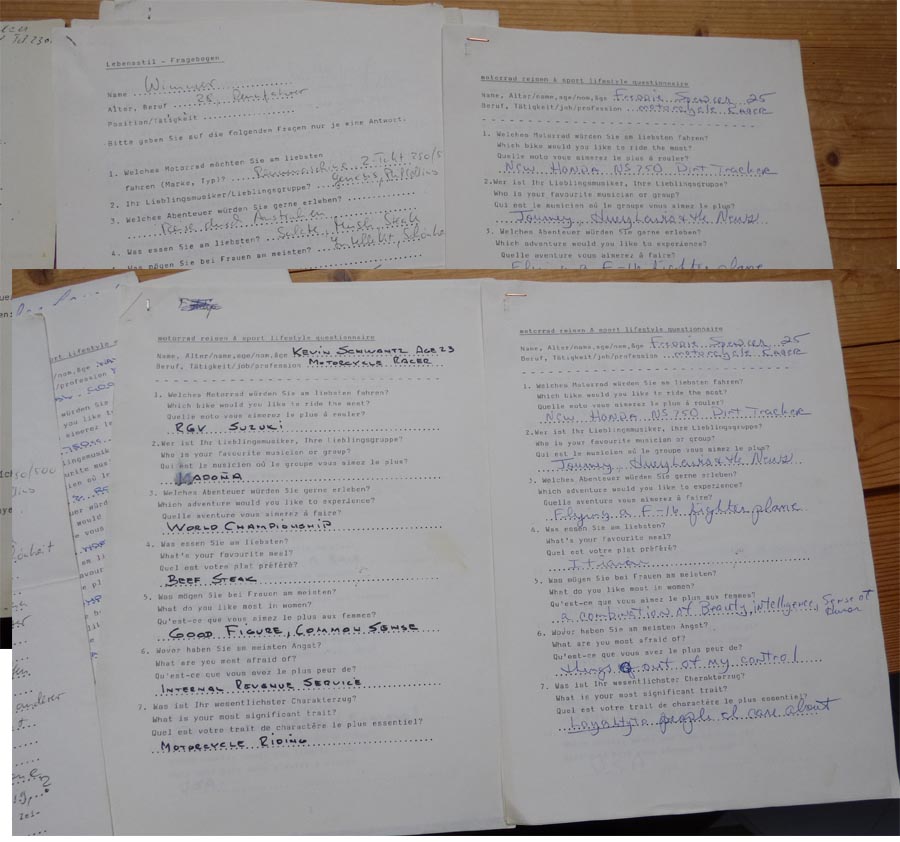 Tel.230
Lebensstil - Fragebogen
Name Wimmer
Alter, Beruf 26,
Position/Tätigkeit
Bitte geben Sie auf die folgenden Fragen nur je eine Antwort.
1. Welches Motorrad möchten Sie am liebsten
fahren (Marke, Typ)?
2. Ihr Lieblingsmusiker/Lieblingsgruppe? Genesis,
3. Welches Abenteuer würden Sie gerne erleben?
Reise durch Australien
4. Was essen Sie am liebsten? Salate,
mögen Sie bei Frauen am meisten?
motorrad reisen & sport lifestyle questionnaire
Name, Alter/name,age/nom,âge Freddie Spencer 25
Beruf, Tätigkeit/job/profession motorcycle Racer
1. Welches Motorrad würden Sie am liebsten fahren?
Which bike would you like to ride the most?
Quelle moto vous aimerez le plus à rouler?
New Honda NS 750 Dirt Tracker
2.Wer ist Ihr Lieblingsmusiker, Ihre Lieblingsgruppe?
Who is your favourite musician or group?
Qui est le musicien où le groupe vous aimez le plus?
Journey, Huey Lewis & the News
3. Welches Abenteuer würden Sie gerne erleben?
Which adventure would you like to experience?
Quelle aventure vous aimerez à faire?
Flying a F-16 fighter plane
motorrad reisen & sport lifestyle questionnaire
Name, Alter/name,age/nom,âge Kevin Schwantz Age 23
Beruf, Tätigkeit/job/profession Motorcycle Racer
1. Welches Motorrad würden Sie am liebsten fahren?
Which bike would you like to ride the most?
Quelle moto vous aimerez le plus à rouler?
RGV Suzuki
2.Wer ist Ihr Lieblingsmusiker, Ihre Lieblingsgruppe?
Who is your favourite musician or group?
Qui est le musicien où le groupe vous aimez le plus?
Madona
3. Welches Abenteuer würden Sie gerne erleben?
Which adventure would you like to experience?
Quelle aventure vous aimerez à faire?
World Championship
4. Was essen Sie am liebsten?
What's your favourite meal?
Quel est votre plat préféré?
Beef Steak
5. Was mögen Sie bei Frauen am meisten?
What do you like most in women?
Qu'est-ce que vous aimez le plus aux femmes?
Good Figure, Common Sense
6. Wovor haben Sie am meisten Angst?
What are you most afraid of?
Qu'est-ce que vous avez le plus peur de?
Internal Revenue Service
7. Was ist Ihr wesentlichster Charakterzug?
What is your most significant trait?
Quel est votre trait de charactère le plus essentiel?
Motorcycle Riding
motorrad reisen & sport lifestyle questionnaire
Name, Alter/name,age/nom,âge Freddie Spencer 25
Beruf, Tätigkeit/job/profession motorcycle Racer
1. Welches Motorrad würden Sie am liebsten fahren?
Which bike would you like to ride the most?
Quelle moto vous aimerez le plus à rouler?
New Honda NS 750 Dirt Tracker
2.Wer ist Ihr Lieblingsmusiker, Ihre Lieblingsgruppe?
Who is your favourite musician or group?
Qui est le musicien où le groupe vous aimez le plus?
Journey, Huey Lewis & the News
3. Welches Abenteuer würden Sie gerne erleben?
Which adventure would you like to experience?
Quelle aventure vous aimerez à faire?
Flying a F-16 fighter plane
4. Was essen Sie am liebsten?
What's your favourite meal?
Quel est votre plat préféré?
Italian
5. Was mögen Sie bei Frauen am meisten?
What do you like most in women?
Qu'est-ce que vous aimez le plus aux femmes?
a combination of Beauty, intelligence, Sense of
Humor
6. Wovor haben Sie am meisten Angst?
What are you most afraid of?
Qu'est-ce que vous avez le plus peur de?
things out of my control
7. Was ist Ihr wesentlichster Charakterzug?
What is your most significant trait?
Quel est votre trait de charactère le plus essentiel?
Loyalty to people I care about